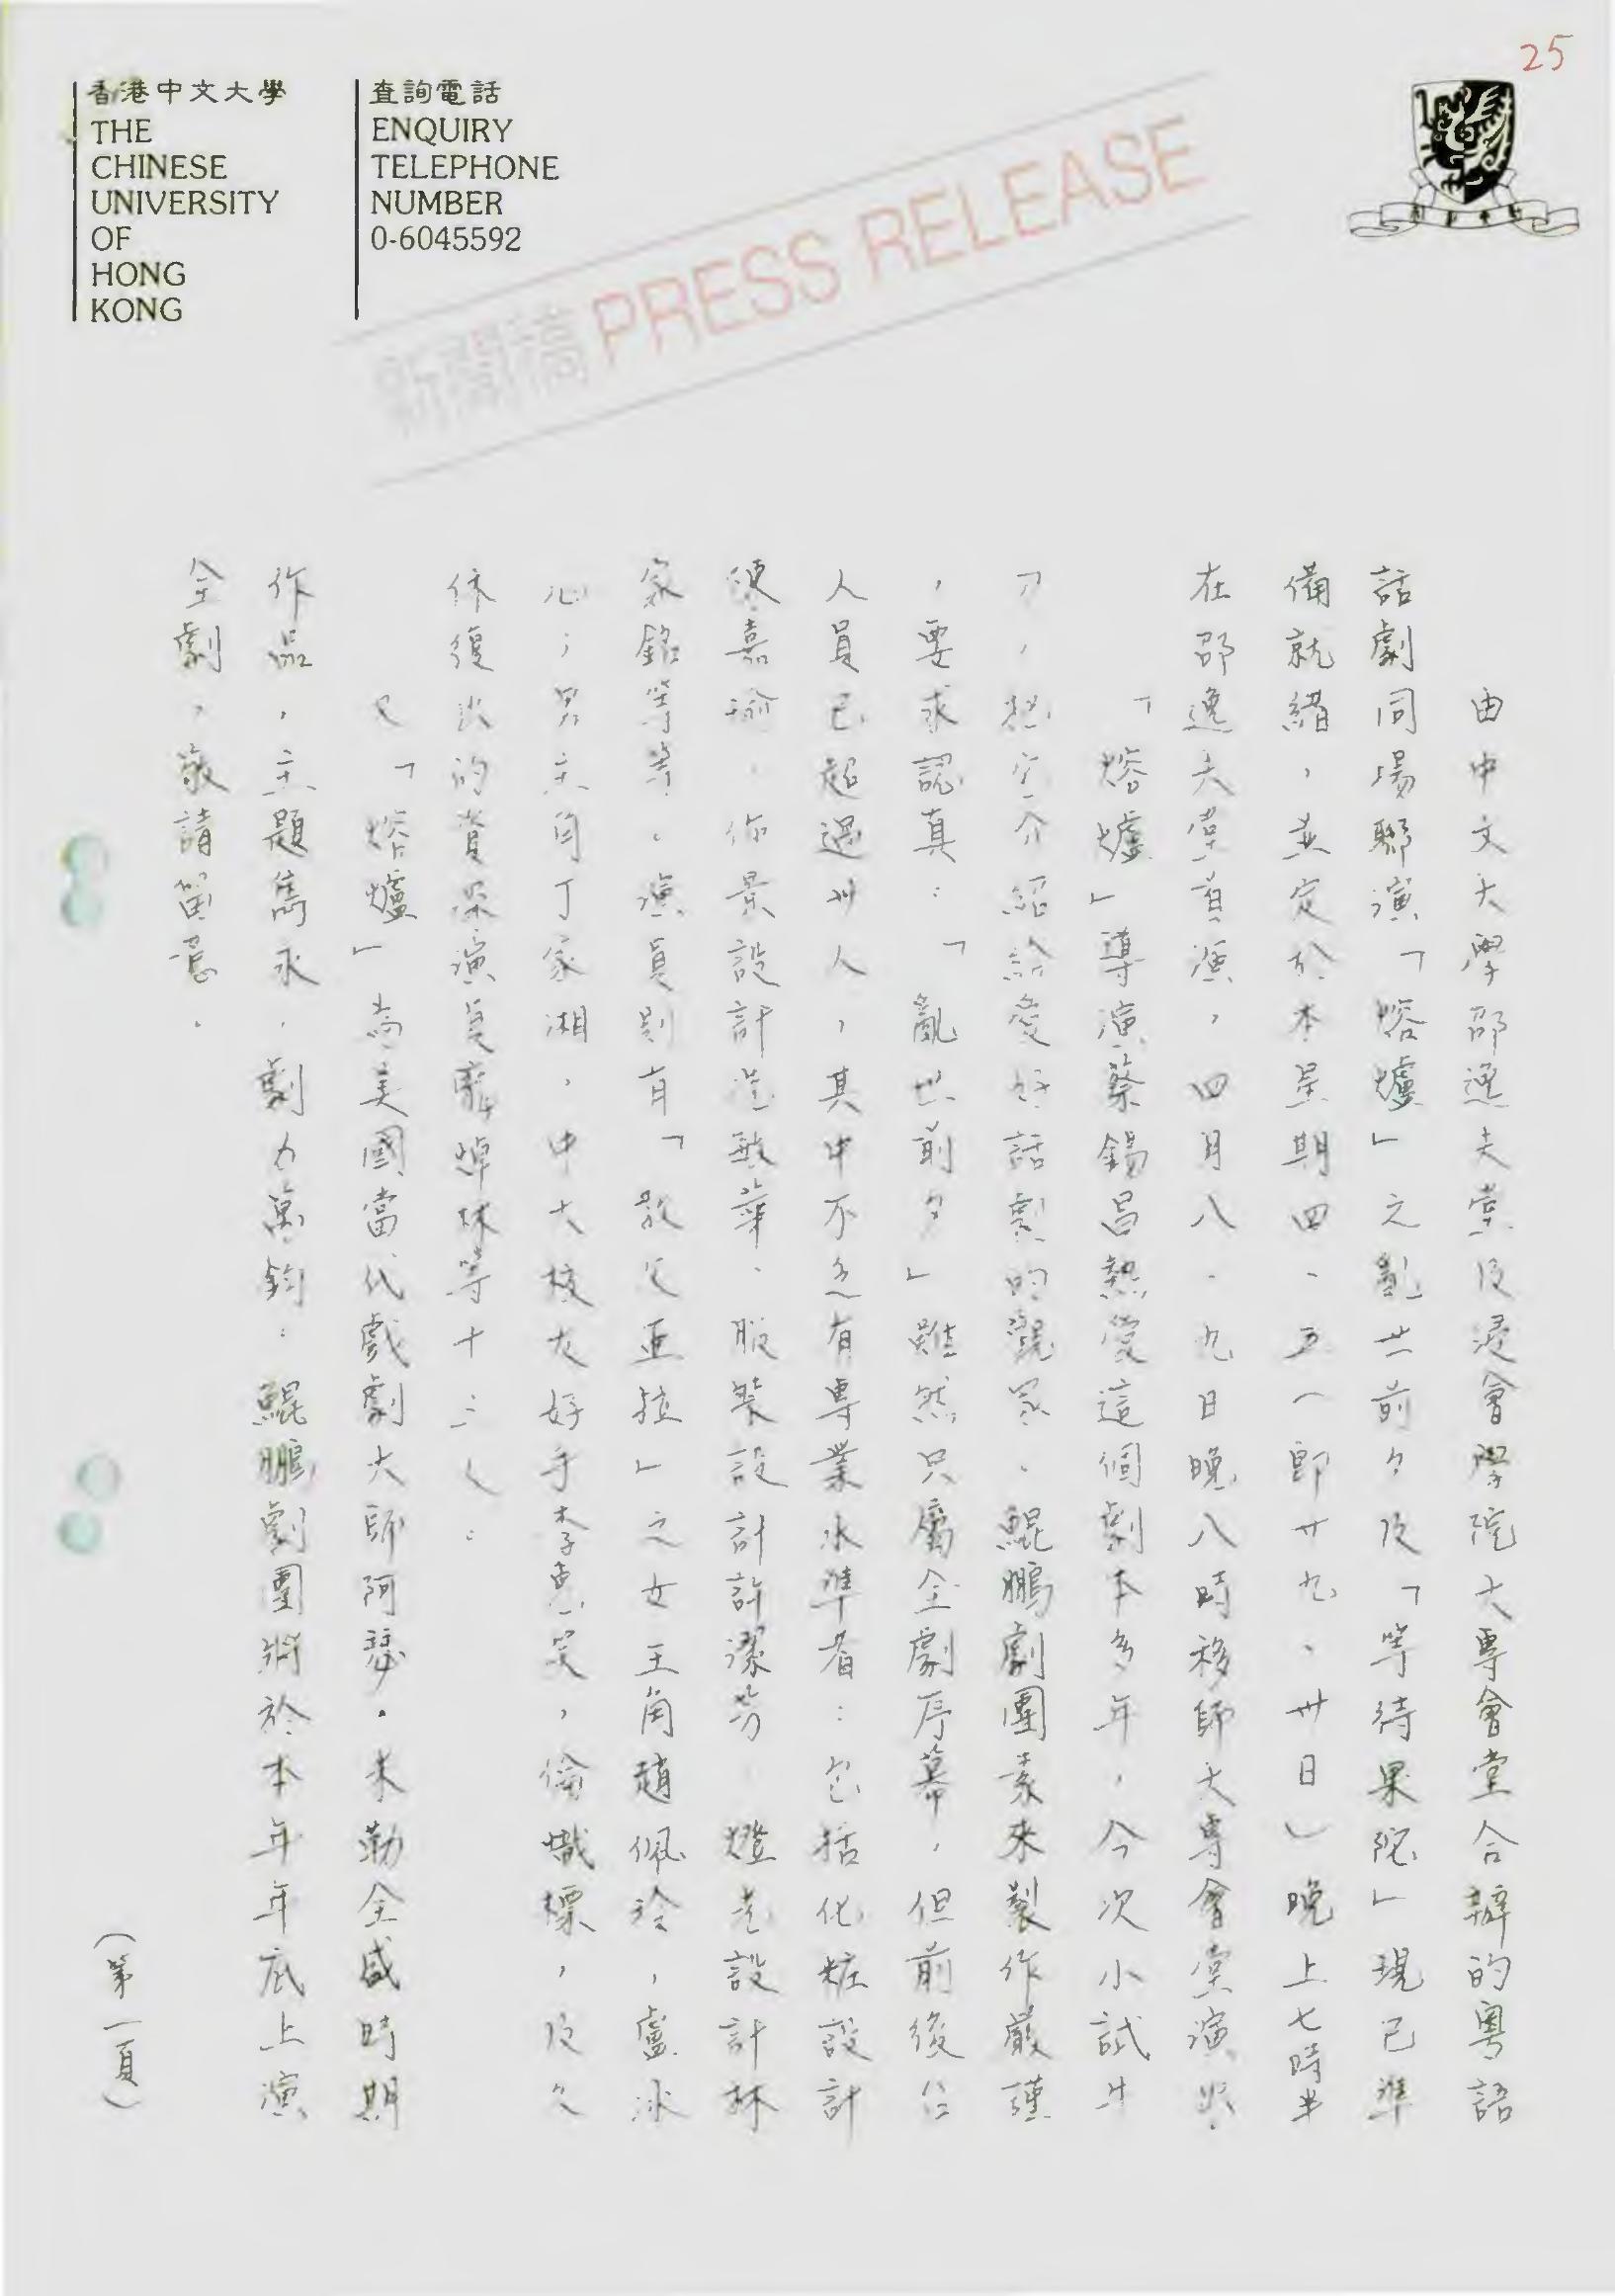 25
香港中文大學
THE
CHINESE
UNIVERSITY
OF
HONG
KONG
查詢電話
ENQUIRY
TELEPHONE
NUMBER
0-6045592
新聞稿 PRESS RELEASE
由中文大學邵逸夫堂及浸會學院大專會堂合辦的粵語
話劇同場聯演「熔爐」之亂世前夕及「等待果陀」現已準
備就緒，並定於本星期四、五(即廿九、卅日)晚上七時半
在邵逸夫堂首演，四月八、九日晚八時移師大專會堂演出。
「熔爐」導演蔡錫昌熱愛這個劇本多年，今次小試牛
刀，想介紹給愛好話劇的觀眾。鯤鵬劇團素來製作嚴謹
，要求認真：「亂世前夕」雖然只屬全劇序幕，但前後台
人員已超過卅人，其中不乏有專業水準者：包括化粧設計
陳嘉瑜、佈景設計、服裝設計許漾芳、燈光設計林
家銘等等。演員則有「之女王角趙佩玲，盧冰
心；男主角丁家湘，中大校友好手李惠，倫熾標，及久
休復出的資深演員焯林等十三人。
又「熔爐」為美國當代戲劇大師阿瑟·米勒全盛時期
作品，主題雋永，劇力萬鈞。鯤鵬劇團將於本年年底上演
全劇，敬請留意。
(第一頁)